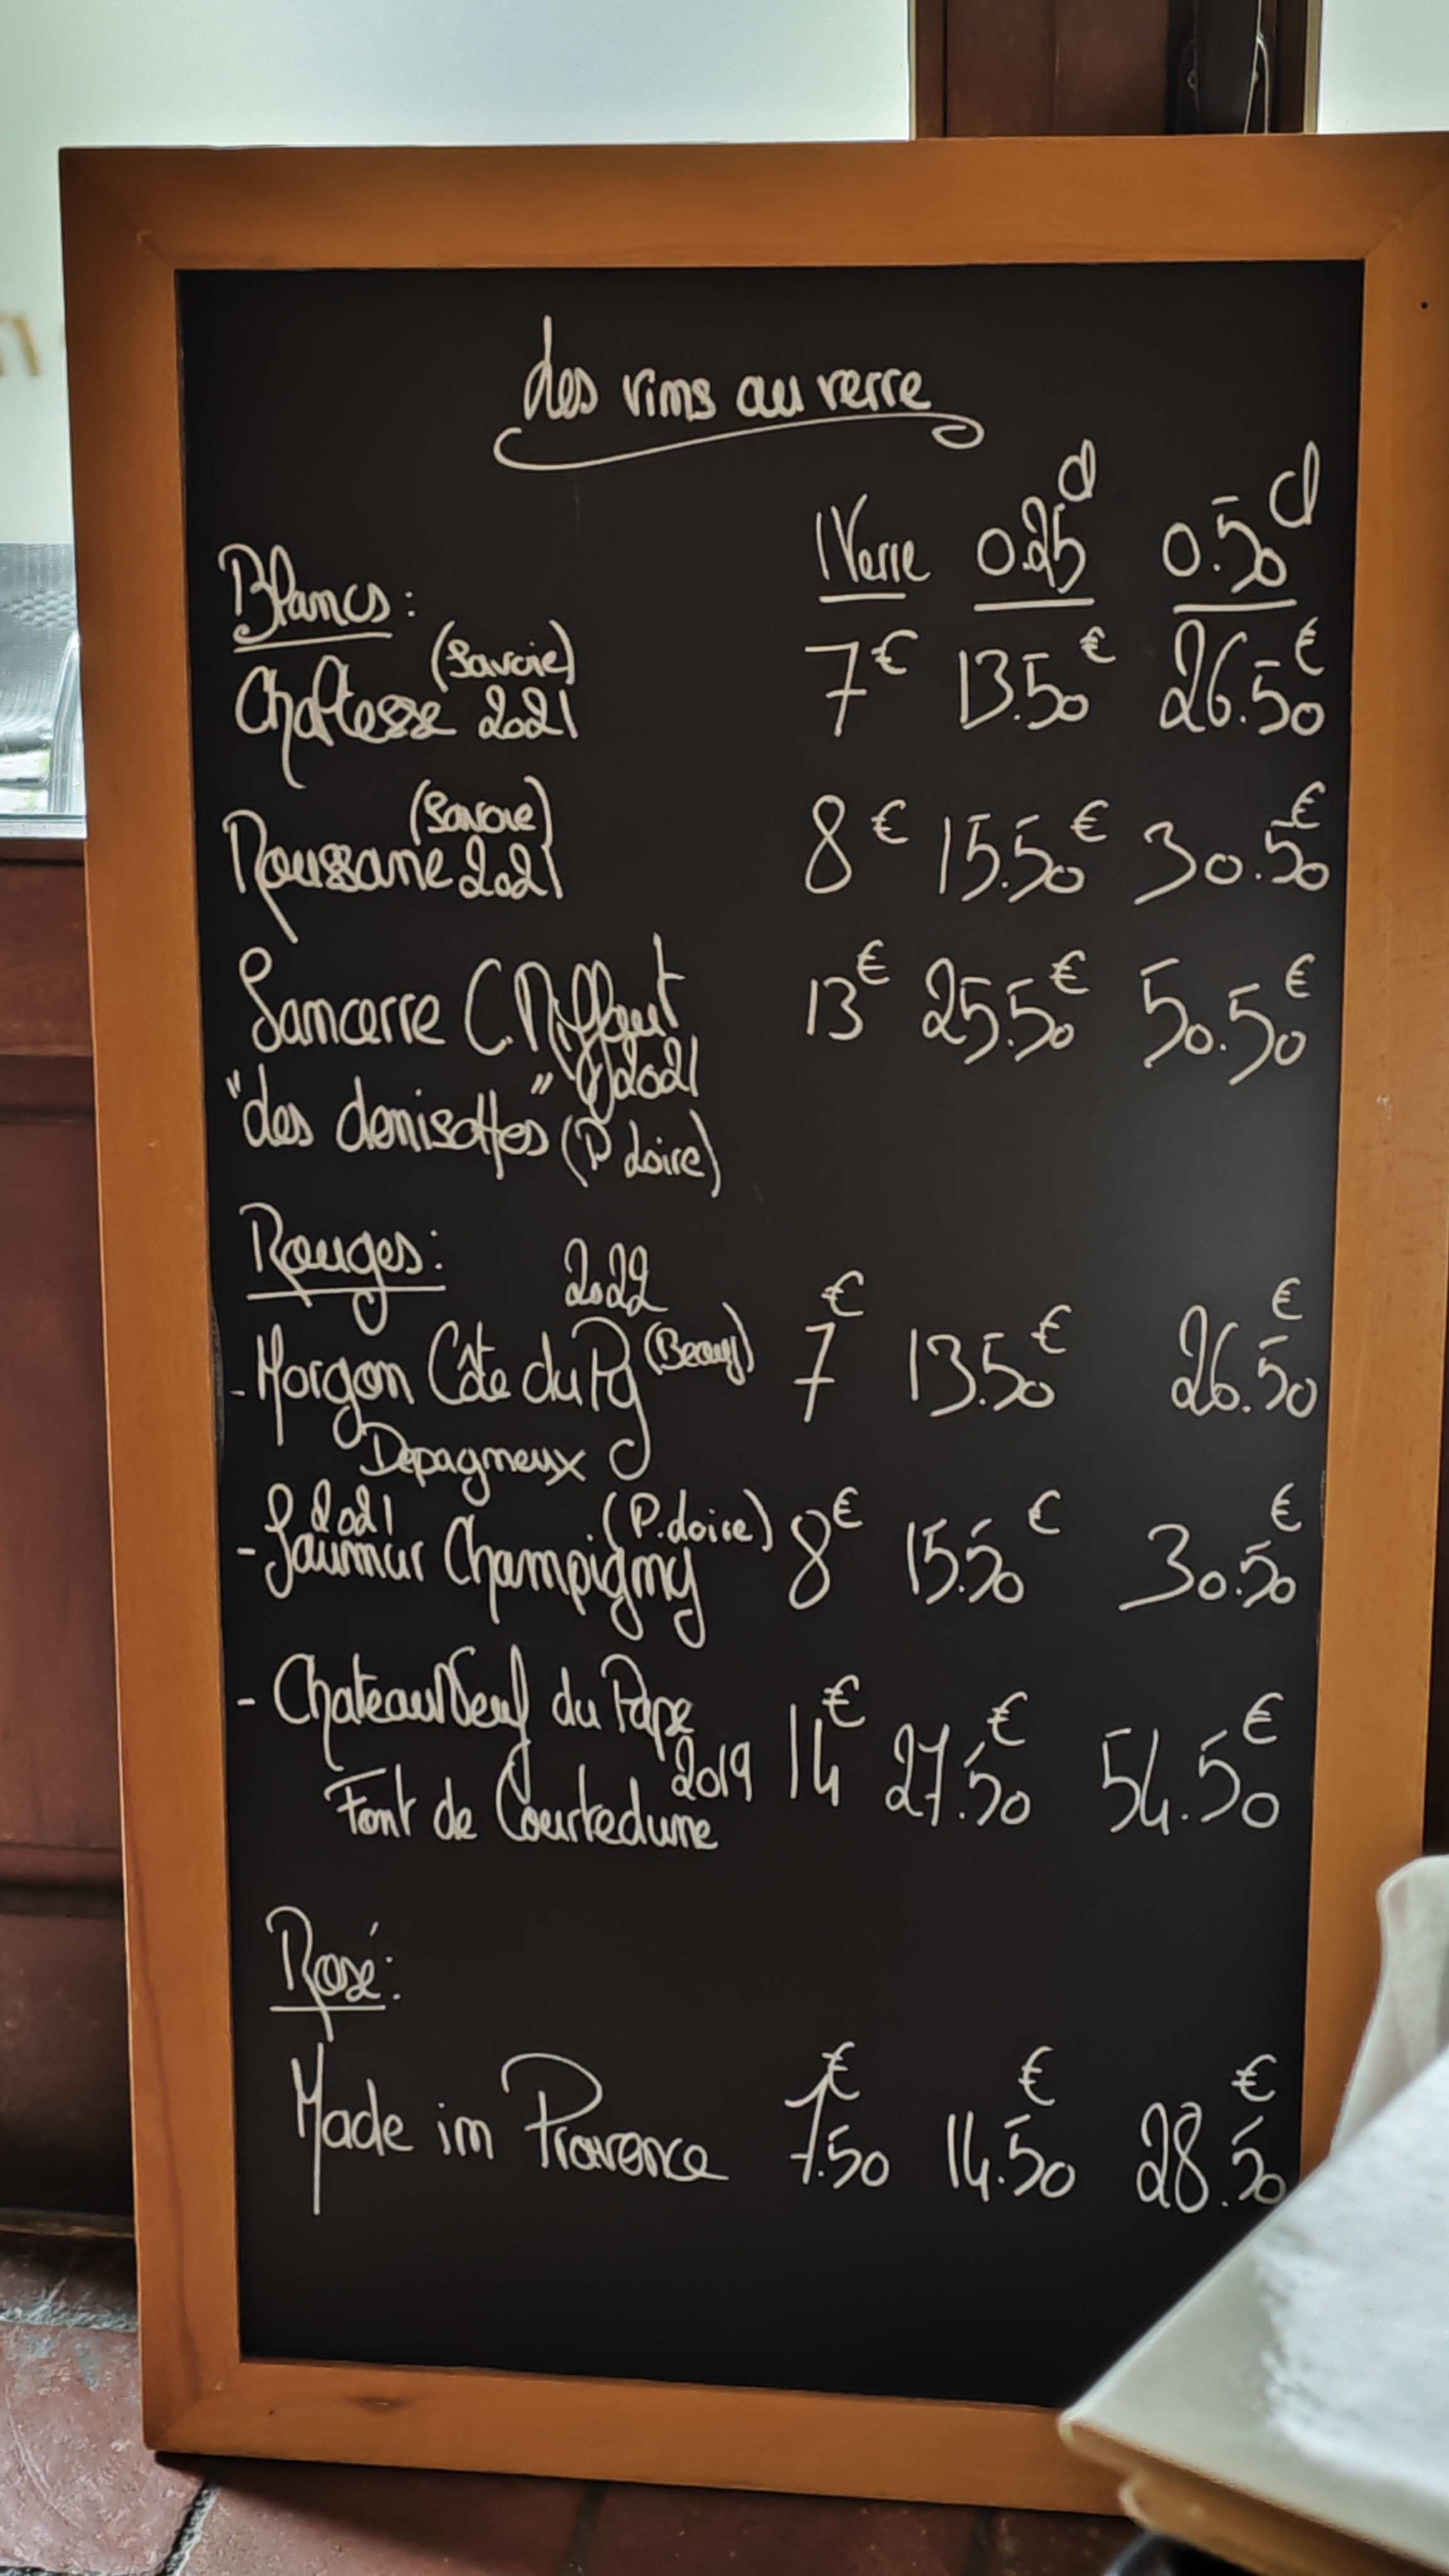 Les vins au verre
1 Verre 0.25 cl 0.50 cl
Blancs:
(Savoie)
Chatesse 2021 7€ 13.50€ 26.50€
(Savoie)
Roussane 2021 8€ 15.50€ 30.50€
Sancerre C. Riffaut 13€ 25.50€ 50.50€
2021
"Les denisottes" (P Loire)
Rouges:
2022
- Morgon Côte du Py (Beauj) 7€ 13.50€ 26.50€
Depagneux
2021
- Saumur Champigny (P. Loire) 8€ 15.50€ 30.50€
- ChateauNeuf du Pape
2019 14€ 27.50€ 54.50€
Font de Courtedune
Rosé:
Made in Provence 7.50€ 14.50€ 28.50€